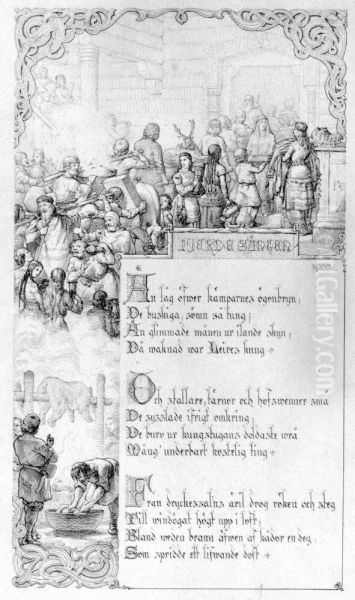 FJERDE SÅNGEN
Än låg öfwer kämparnes ögonbryn,
De buskiga, sömn så tung;
Än glimmade månen ur ilande skyn,
Då waknad war Leires kung
Och stallare, tärnor och hofswenner små
De sysslade ifrigt omkring;
De buro ur kungstugans doldaste wrå
Mång' underbart kostelig ting
Från dryckessalns äril drog röken och steg
Till windögat högt upp i loft;
Bland weden brann äfwen af kådor en deg,
Som spridde ett lifwande doft